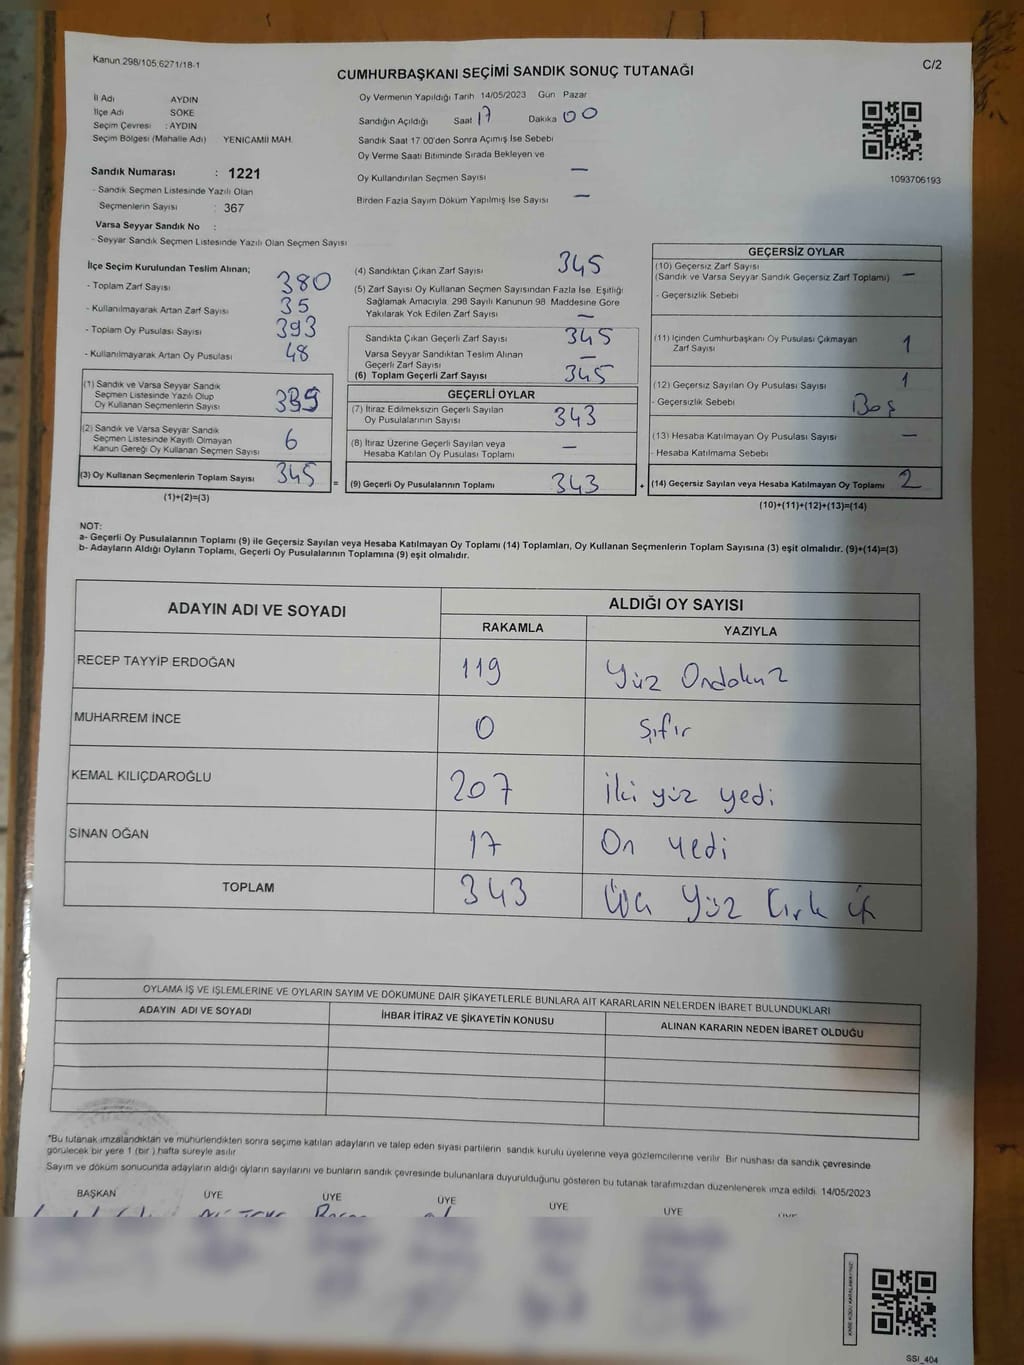 Kanun 298/105 6271/18-1
CUMHURBAŞKANI SEÇİMİ SANDIK SONUÇ TUTANAĞI
C/2
İl Adı AYDIN
İlçe Adı SÖKE
Seçim Çevresi : AYDIN
Seçim Bölgesi (Mahalle Adı) YENİCAMİİ MAH.
Sandık Numarası : 1221
- Sandık Seçmen Listesinde Yazılı Olan
Seçmenlerin Sayısı : 367
Varsa Seyyar Sandık No :
- Seyyar Sandık Seçmen Listesinde Yazılı Olan Seçmen Sayısı
Oy Vermenin Yapıldığı Tarih 14/05/2023 Gün Pazar
Sandığın Açıldığı Saat 17 Dakika 00
Sandık Saat 17 00'den Sonra Açımış İse Sebebi
Oy Verme Saati Bitiminde Sırada Bekleyen ve
Oy Kullandırılan Seçmen Sayısı —
Birden Fazla Sayım Döküm Yapılmış İse Sayısı —
1093706193
İlçe Seçim Kurulundan Teslim Alınan;
- Toplam Zarf Sayısı 380
- Kullanılmayarak Artan Zarf Sayısı 35
- Toplam Oy Pusulası Sayısı 393
- Kullanılmayarak Artan Oy Pusulası 48
(1) Sandık ve Varsa Seyyar Sandık
Seçmen Listesinde Yazılı Olup
Oy Kullanan Seçmenlerin Sayısı 339
(2) Sandık ve Varsa Seyyar Sandık
Seçmen Listesinde Kayıtlı Olmayan
Kanun Gereği Oy Kullanan Seçmen Sayısı 6
(3) Oy Kullanan Seçmenlerin Toplam Sayısı 345
(1)+(2)=(3)
(4) Sandıktan Çıkan Zarf Sayısı 345
(5) Zarf Sayısı Oy Kullanan Seçmen Sayısından Fazla İse, Eşitliği
Sağlamak Amacıyla, 298 Sayılı Kanunun 98 Maddesine Göre
Yakılarak Yok Edilen Zarf Sayısı —
Sandıkta Çıkan Geçerli Zarf Sayısı 345
Varsa Seyyar Sandıktan Teslim Alınan
Geçerli Zarf Sayısı —
(6) Toplam Geçerli Zarf Sayısı 345
GEÇERLİ OYLAR
(7) İtiraz Edilmeksizin Geçerli Sayılan
Oy Pusulalarının Sayısı 343
(8) İtiraz Üzerine Geçerli Sayılan veya
Hesaba Katılan Oy Pusulası Toplamı —
= (9) Geçerli Oy Pusulalarının Toplamı 343 +
GEÇERSİZ OYLAR
(10) Geçersiz Zarf Sayısı
(Sandık ve Varsa Seyyar Sandık Geçersiz Zarf Toplamı) —
- Geçersizlik Sebebi
(11) İçinden Cumhurbaşkanı Oy Pusulası Çıkmayan
Zarf Sayısı 1
(12) Geçersiz Sayılan Oy Pusulası Sayısı 1
- Geçersizlik Sebebi Boş
(13) Hesaba Katılmayan Oy Pusulası Sayısı —
- Hesaba Katılmama Sebebi
(14) Geçersiz Sayılan veya Hesaba Katılmayan Oy Toplamı 2
(10)+(11)+(12)+(13)=(14)
NOT:
a- Geçerli Oy Pusulalarının Toplamı (9) ile Geçersiz Sayılan veya Hesaba Katılmayan Oy Toplamı (14) Toplamları, Oy Kullanan Seçmenlerin Toplam Sayısına (3) eşit olmalıdır. (9)+(14)=(3)
b- Adayların Aldığı Oyların Toplamı, Geçerli Oy Pusulalarının Toplamına (9) eşit olmalıdır.
ADAYIN ADI VE SOYADI ALDIĞI OY SAYISI
RAKAMLA YAZIYLA
RECEP TAYYİP ERDOĞAN 119 Yüz Ondokuz
MUHARREM İNCE 0 Şıfır
KEMAL KILIÇDAROĞLU 207 İki yüz yedi
SİNAN OĞAN 17 On yedi
TOPLAM 343 Yüz
OYLAMA İŞ VE İŞLEMLERİNE VE OYLARIN SAYIM VE DÖKÜMÜNE DAİR ŞİKAYETLERLE BUNLARA AİT KARARLARIN NELERDEN İBARET BULUNDUKLARI
ADAYIN ADI VE SOYADI İHBAR İTİRAZ VE ŞİKAYETİN KONUSU ALINAN KARARIN NEDEN İBARET OLDUĞU
*Bu tutanak imzalandıktan ve mühürlendikten sonra seçime katılan adayların ve talep eden siyasi partilerin sandık kurulu üyelerine veya gözlemcilerine verilir. Bir nüshası da sandık çevresinde
görülecek bir yere 1 (bir ) hafta süreyle asılır
Sayım ve döküm sonucunda adayların aldığı oyların sayılarını ve bunların sandık çevresinde bulunanlara duyurulduğunu gösteren bu tutanak tarafımızdan düzenlenerek imza edildi. 14/05/2023
BAŞKAN ÜYE ÜYE ÜYE ÜYE ÜYE
SSİ_404